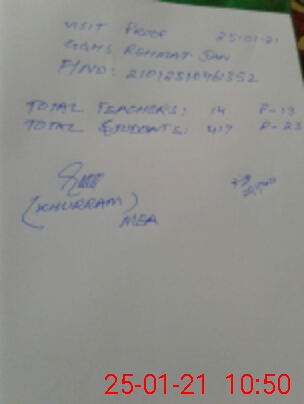 VISIT PROOF 25-01-21
GGHS REHMAT JAN
FIND: 21012510461352
TOTAL TEACHERS: 14 P-13
TOTAL STUDENTS: 417 P-23
(KHURRAM)
MEA
25-01-21 10:50